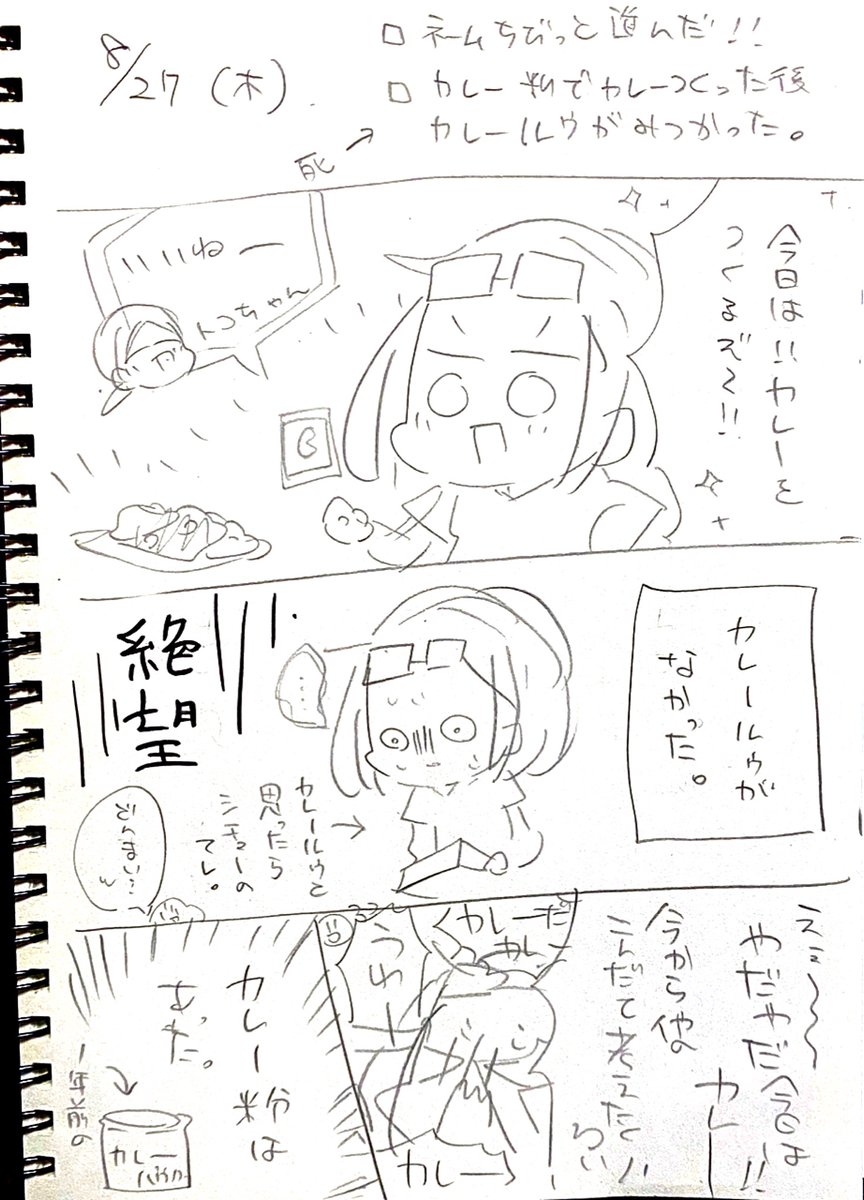 8/27(木)
□ ネームちびっと進んだ!!
□ カレー粉でカレーつくった後
カレールウがみつかった。
死
今日は!!カレーを
つくるぞ〜!!
いいねー
トコちゃん
カレールゥが
なかった。
…
絶望
カレールウと
思ったら
シチューの
でし。
えぇ〜〜〜
やだやだ今日は
カレー!!
今からゆの
こんだて考えたく
ない
カレーだ
カレー
うわー
カレー
カレー粉は
あった。
一年前の
カレー